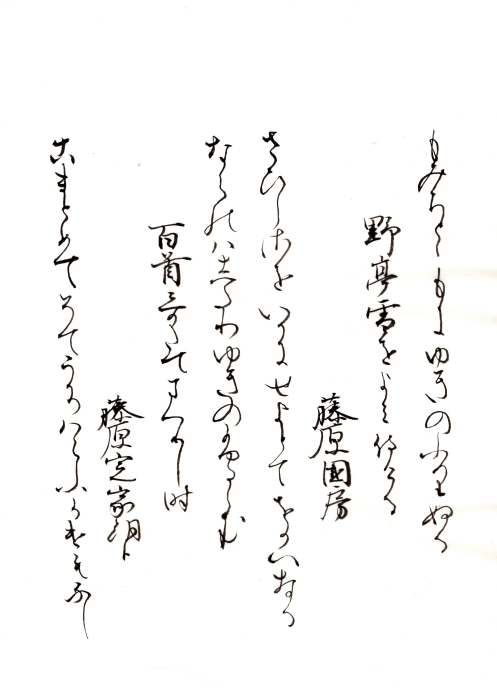 もみちとゝもにゆきのふりぬる
野亭雪をよみ侍りける
藤原國房
さひしさをいかにせよとてをかへなる
ならのはしたりゆきのふるらむ
百首哥たてまつりし時
藤原定家朝臣
こまとめてそてうちはらふかけもなし